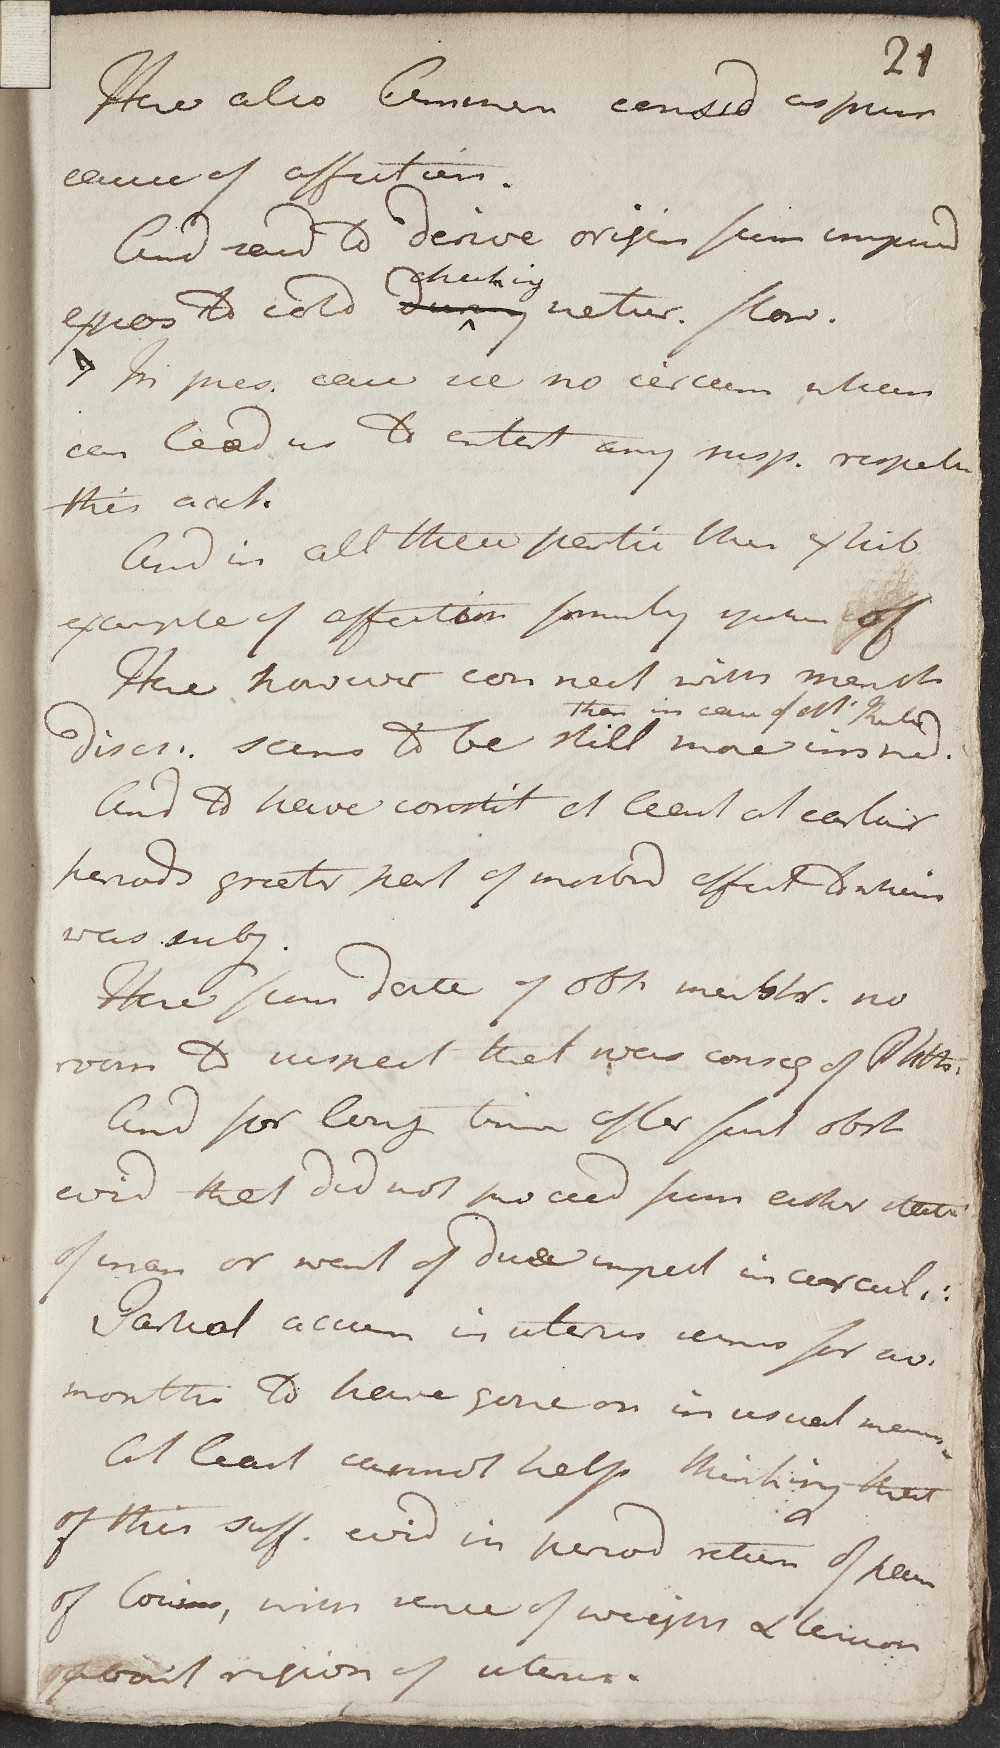 21
Here also Common consid as prim
cause of affection.
And said to derive origin from imprud
expos to cold during checking netur. flow.
In pres. case see no circum when
can lead us to entert any susp. respectn
this acct.
And in all these partic then exhib
example of affection formerly spoken of
Here however connect with menstr
than in case of Mr.
Discr. seems to be still more immed.
And to have constit at least at earlier
periods greater part of morbid affect to which
was subj.
Here from date of obstr menstr. no
room to suspect that was conseq of Phths.
And for long time after first obst
evid that did not proceed from either state
of mass or want of due impet in circul.:
Partial accum in uterus seems for sev.
months to have gone on in usual mann.
At least cannot help thinking that
of this suff. evid in period return of pain
of Loins, with sense of weight & tension
about region of uterus.